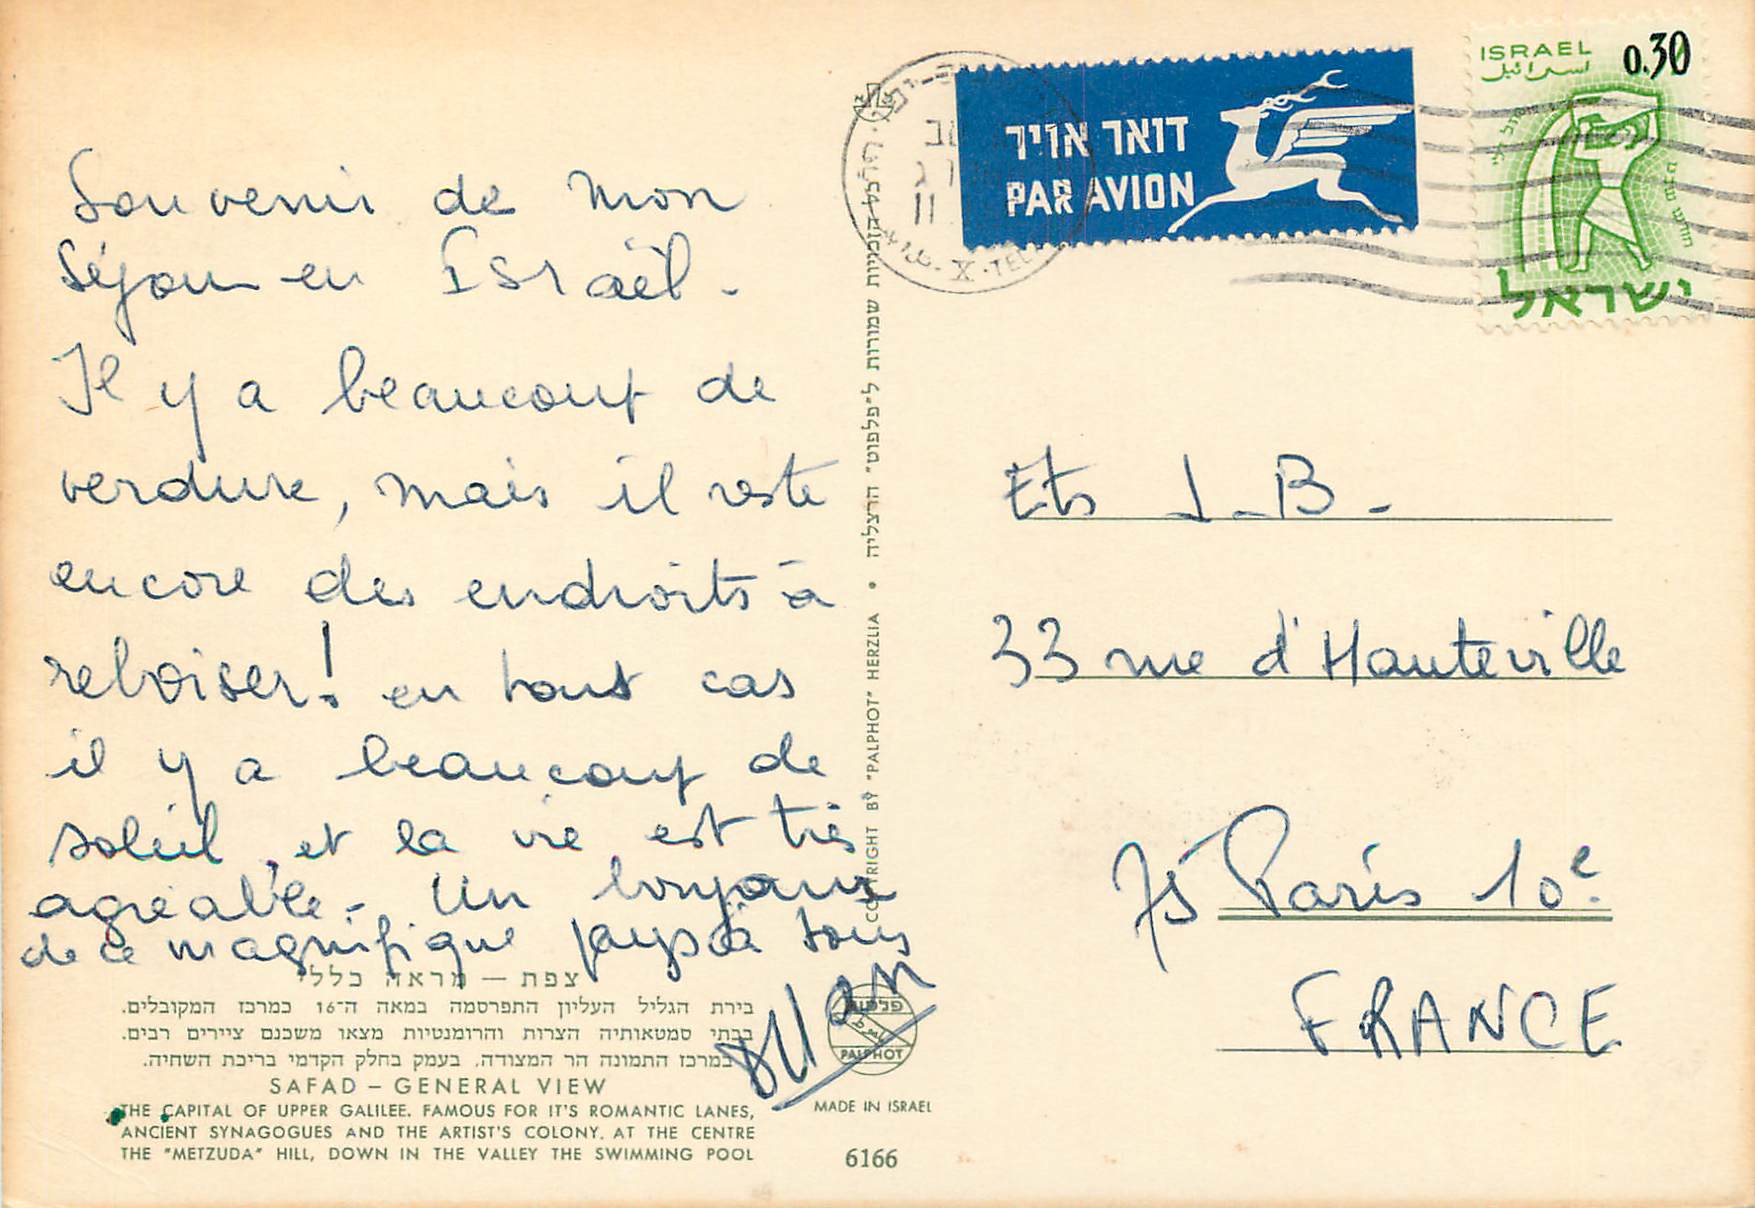 Souvenir de mon
séjour en Israël.
Il y a beaucoup de
verdure, mais il reste
encore des endroits à
reboiser! en tout cas
il y a beaucoup de
soleil et la vie est très
agréable. Un bonjour
de ce magnifique pays à tous
צפת — מראה כללי
בירת הגליל העליון התפרסמה במאה ה־16 כמרכז המקובלים.
בבתי סמטאותיה הצרות והרומנטיות מצאו משכנם ציירים רבים.
במרכז התמונה הר המצודה. בעמק בחלק הקדמי בריכת השחיה.
SAFAD – GENERAL VIEW
THE CAPITAL OF UPPER GALILEE. FAMOUS FOR IT'S ROMANTIC LANES,
ANCIENT SYNAGOGUES AND THE ARTIST'S COLONY. AT THE CENTRE
THE "METZUDA" HILL, DOWN IN THE VALLEY THE SWIMMING POOL
COPYRIGHT BY "PALPHOT" HERZLIA • הזכויות שמורות ל"פלפוט" הרצליה
פלפוט
PALPHOT
MADE IN ISRAEL
6166
דואר אויר
PAR AVION
ISRAEL 0.30
اسرائيل
ישראל
Ets J.B.
33 rue d'Hauteville
75 Paris 10e
FRANCE